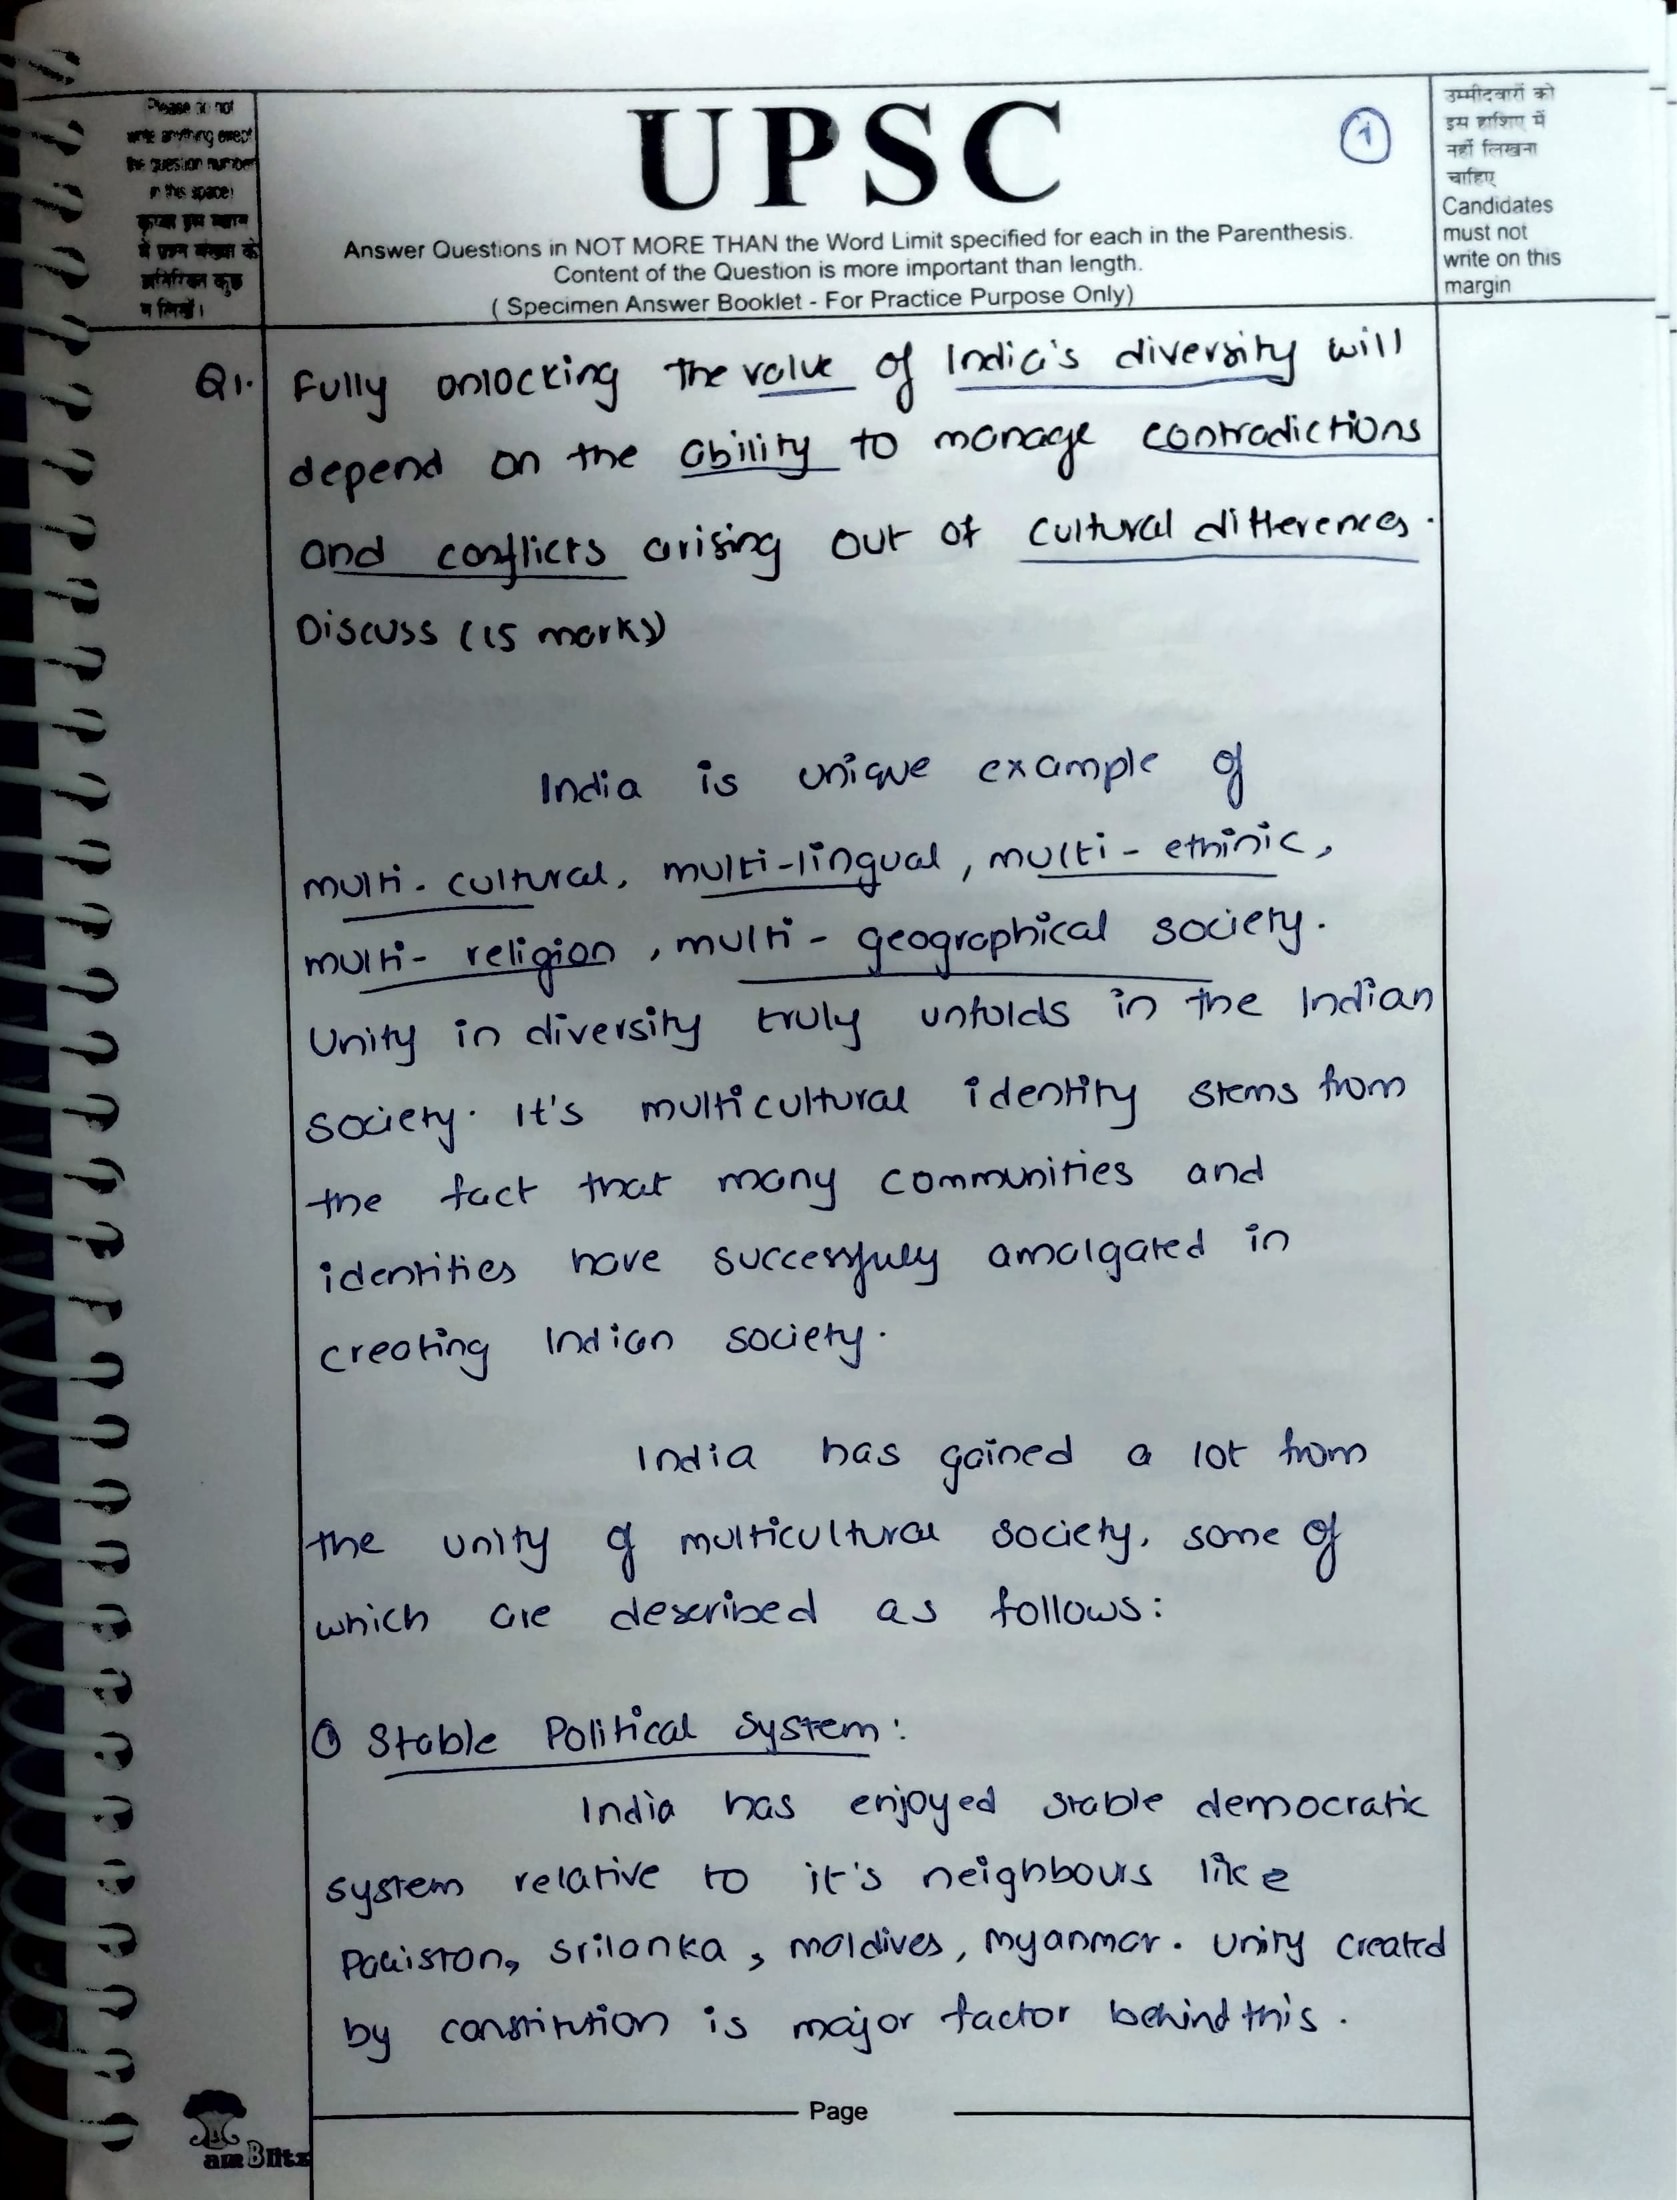 Please do not
write anything exept
the question number
in this space!
कृपया इस स्थान
में प्रश्न संख्या के
अतिरिक्त कुछ
न लिखें।
UPSC
1
Answer Questions in NOT MORE THAN the Word Limit specified for each in the Parenthesis.
Content of the Question is more important than length.
( Specimen Answer Booklet - For Practice Purpose Only)
उम्मीदवारों को
इस हाशिए में
नहीं लिखना
चाहिए
Candidates
must not
write on this
margin
Q1. Fully unlocking the value of India's diversity will
depend on the ability to manage contradictions
and conflicts arising out of cultural differences.
Discuss (15 marks)
India is unique example of
multi-cultural, multi-lingual, multi-ethinic,
multi-religion, multi-geographical society.
Unity in diversity truly unfolds in the Indian
society. It's multicultural identity stems from
the fact that many communities and
identities have successfully amalgated in
creating Indian society.
India has gained a lot from
the unity of multicultural society, some of
which are described as follows:
① Stable Political System:
India has enjoyed stable democratic
system relative to it's neighbours like
Pakistan, Srilanka, Maldives, Myanmar. Unity created
by constitution is major factor behind this.
Page
amBlitz